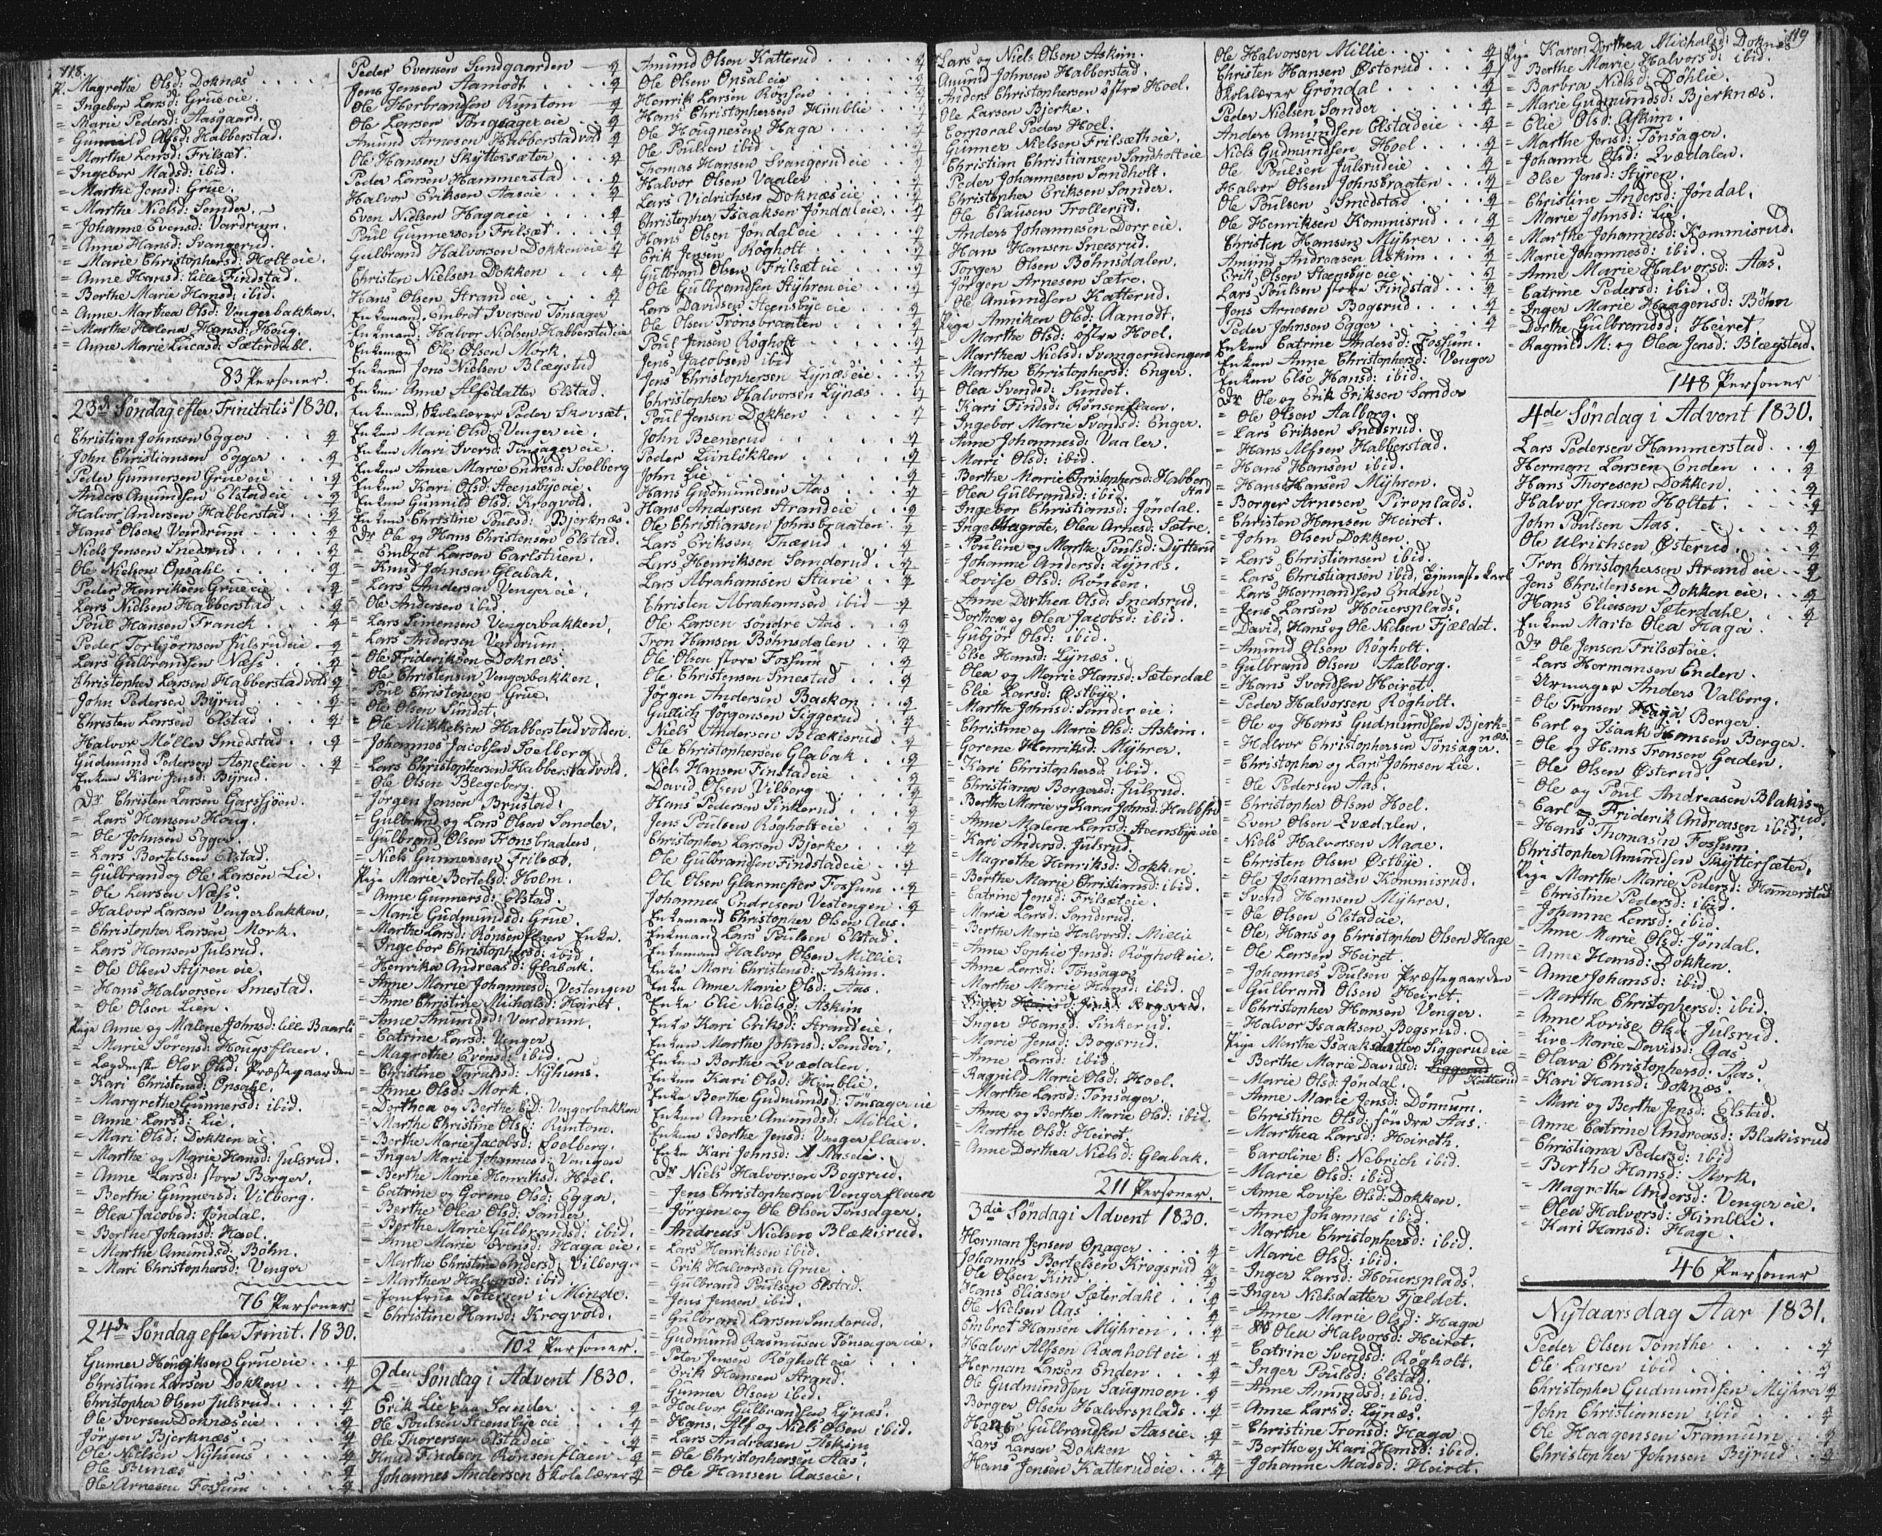 118.
P. Magrethe Olsd: Doknæs.
= Ingebor Larsd: Grueeie.
= Marie Pedersd: Aasgaard.
= Gunnild Alfsd: Habberstad.
= Marthe Larsd: Frilsæt.
= Ingebor Madsd: ibid.
= Marthe Jensd: Grue.
= Marthe Nielsd: Sander.
= Johanne Evensd: Vardrum.
= Anne Hansd: Svangerud.
= Marie Christophersd: Holteie.
= Anne Hansd: lille Findstad.
= Berthe Marie Hansd: ibid.
= Anne Marthea Olsd: Vengerbakken.
= Marthe Helena Hansd: Houg.
= Anne Marie Lucasd: Sæterdahl.
83 Personer.
23de Søndag efter Trinitatis 1830.
Christian Johnsen Egger . . . 4
John Christiansen Egger . . . 4
Peder Gunnersen Grueeie . . . 4
Anders Amundsen Elstadeie . . . 4
Halvor Andersen Habberstad . . 4
Hans Olsen Vardrum . . . 4
Niels Jensen Snedsrud . . . 4
Ole Nielsen Opsahl . . . 4
Peder Henriksen Grueeie . . . 4
Lars Nielsen Habberstad . . . 4
Poul Hansen Franck . . . 4
Peder Torbjørnsen Julsrudeie . . 4
Lars Gulbrandsen Næss . . . 4
Christopher Larsen Habberstadvold 4
John Pedersen Byrud . . . 4
Christen Larsen Elstad . . . 4
Halvor Møller Smedstad . . . 4
Gudmund Pedersen Aspelien . . 4
Enken Kari Jensd: Byrud.
Dr Christen Larsen Garssjøen.
= Lars Hansen Houg.
= Ole Johnsen Egger.
= Lars Bertelsen Elstad.
= Gulbrand og Ole Larsen Lie.
= Ole Larsen Næss.
= Halvor Larsen Vengerbakken.
= Christopher Larsen Mork.
= Lars Hansen Julsrud.
= Ole Olsen Styreneie.
= Hans Halvorsen Smestad.
= Ole Olsen Lien.
Pige Anne og Malene Johnsd: lille Baarli
= Marie Sørensd: Hougsflaen.
= Lægdsk: Olov Olsd: Præstegaarden
= Kari Christensd: Opsahl.
= Margrethe Gunnersd: ibid.
= Anne Larsd: Lie.
= Mari Olsd: Dokkeneie.
= Marthe og Marie Hansd: Julsrud.
= Anne Larsd: store Berger.
= Berthe Gunnersd: Vilberg.
= Olea Jacobsd: Jøndal.
= Berthe Johansd: Hoel.
= Marthe Amundsd: Bøhn.
= Mari Christophersd: Venger
76 Personer
24de Søndag efter Trinit. 1830.
Gunner Henriksen Grueeie . . . 4
Christian Larsen Dokken . . . 4
Christopher Olsen Julsrud . . . 4
Ole Iversen Doknæseie . . . 4
Jørgen Bjerknæs . . . 4
Ole Nielsen Nyhuus . . . 4
Ole Bunæs . . . 4
Ole Arnesen Fossum . . . 4
Peder Evensen Sundgaarden 4
Jens Jensen Aamodt . . . 4
Ole Thorbrandsen Runtom 4
Ole Larsen Tønsagereie . . 4
Amund Arnesen Habberstadvold 4
Ole Hansen Skyttersæter . . 4
Peder Larsen Hammerstad . . 4
Halvor Eriksen Aaseie . . . 4
Even Nielsen Hagaeie . . . 4
Poul Gunnersen Frilsæt . . . 4
Gulbrand Halvorsen Dokkeneie 4
Christen Nielsen Dokken . . 4
Hans Olsen Strandeie . . . 4
Enkemand Embret Iversen Tønsager
Enkemand Halvor Nielsen Habberstadeie
Enkemand Ole Olsen Mork.
Enkemand Jens Nielsen Blægstad
Enken Anne Alfsdatter Elstad.
Enkemand Skolelærer Peder Skovsæt.
Enken Mari Olsd: Vengereie.
Enken Mari Iversd: Tønsagereie.
Enken Anne Marie Endresd: Soelberg
Enken Kari Olsd: Steensbyeie.
Enken Gunnild Olsd: Krogvold.
Enken Christine Poulsd: Bjerknæs.
Dr Ole og Hans Christensen Elstad.
= Embret Larsen Carlstuen.
= Knud Johnsen Glabak.
= Lars Andersen Vengereie.
= Ole Andersen ibid.
= Lars Simensen Vengerbakken.
= Lars Andersen Vardrum.
= Ole Frideriksen Doknæs.
= Ole Christensen Vengerbakken.
= Poul Christensen Grue.
= Ole Olsen Sundet.
= Ole Mikkelsen Habberstadvolden.
= Johannes Jacobsen Soelberg.
= Lars Christophersen Habberstadvold.
= Ole Olsen Blegeberg.
= Jørgen Jensen Brustad.
= Gulbrand og Lars Olsen Sander.
= Gulbrand Olsen Tronsbraaten.
= Niels Gunnersen Frilsæt.
Pige Marie Bertelsd: Holm.
= Anne Gunnersd: Elstad.
= Marie Gudmundsd: Grue.
= Marthe Larsd: Rønsenflaen Enke.
= Ingebor Christophersd: ibid.
= Henrika Andreasd: Glabak.
= Anne Marie Johannesd: Vestengen
= Anne Christine Michalsd: Heiret.
= Anne Amundsd: Vardrum.
= Catrine Larsd: Venger
= Magrethe Evensd: ibid.
= Christine Torulsd: Nyhuus.
= Anne Olsd: Mork.
= Dorthea og Berthe Ed: Vengerbakken
= Marthe Christine Olsd: Runtom.
= Berthe Marie Jacobsd: Soelberg.
= Inger Marie Johannesd: Vengen
= Berthe Marie Henriksd: Hoel.
= Catrine og Gorine Olsd: Egger.
= Berthe Olea Olsd: Sander.
= Berthe Marie Gulbrandsd: ibid.
= Anne Marie Evensd: Hagaeie.
= Marthe Christine Andersd: Vilberg.
= Marthea Halvorsd: ibid.
= Jomfrue Petersen i Minde.
= Christine Hansd: Krogvold.
102 Personer.
2den Søndag i Advent 1830.
Erik Lie paa Sander . . . 4
Ole Poulsen Steensbyeie . . . 4
Ole Thoresen Elstadeie . . . 4
Knud Findsen Rønsenflaen . . 4
Johannes Andersen Skolelærer 4
Amund Olsen Katterud . . . 4
Ole Olsen Opsaleie . . . 4
Henrik Larsen Rønsen . . . 4
Hans Christophersen Himblie . . 4
Ole Hougnesen Haga . . . 4
Ole Poulsen ibid . . . 4
Thomas Hansen Svangerudeie 4
Halvor Olsen Vaaler . . . 4
Lars Vidrichsen Doknæseie . . 4
Christopher Isaaksen Jøndaleie . 4
Hans Olsen Jøndaleie . . . 4
Erik Jensen Røgholt . . . 4
Gulbrand Olsen Frilsæteie . . 4
Ole Gulbrandsen Styhreneie . . 4
Lars Davidsen Steensbyeie . . 4
Ole Olsen Tronsbraaten . . 4
Poul Jensen Røgholt . . . 4
Jens Jacobsen ibid . . . 4
Jens Christophersen Lynæseie . . 4
Christopher Halvorsen Lynæs . . 4
Poul Jensen Dokken . . . 4
John Beenerud . . . 4
Peder Lunløkken . . . 4
John Lie . . . 4
Hans Gudmundsen Aas . . . 4
Hans Andersen Strandeie . . 4
Ole Christiansen Johnsbraaten . 4
Lars Eriksen Thærud . . . 4
Lars Henriksen Sanderud . . 4
Lars Abrahamsen Starie . . . 4
Christen Abrahamsen ibid 4
Ole Larsen søndre Aas . . . 4
Tron Hansen Bøhnsdalen . . 4
Ole Olsen store Fossum . . . 4
Ole Christensen Smestad . . 4
Jørgen Andersen Baskop . . 4
Gullick Jørgensen Siggerud . . 4
Niels Andersen Blækisrud . . 4
Ole Christophersen Glabak . . 4
Niels Hansen Finstadeie . . 4
David Olsen Vilberg . . . 4
Hans Pedersen Sinkerud . . 4
Jens Poulsen Røgholteie . . 4
Christopher Larsen Bjerke . . 4
Ole Gulbrandsen Findstadeie . . 4
Ole Olsen Glarmester Fossum . . 4
Johannes Endresen Vestengen . 4
Enkemand Christopher Olsen Aas.
Enkemand Lars Poulsen Elstad.
Enkemand Halvor Olsen Millie.
Enke Mari Christensd: Askim.
Enke Anne Marie Olsd: Aas.
Enke Elie Nielsd: Askim
Enke Kari Eriksd: Strandeie.
Enken Marthe Johnsd: Sander.
Enken Berthe Qvædalen.
Enken Kari Olsd: Himblie.
Enke Berthe Gudmundsd: Tønsagereie
Enken Anne Amundsd: Millie.
Enken Berthe Jensd: Vengerflaen.
Enke Kari Johnsd: Aaseie.
Dr Niels Halvorsen Bogsrud.
= Jens Christophersen Vengerflaen
= Jørgen og Ole Olsen Tønsager.
= Andreas Nielsen Blækisrud.
= Lars Henriksen ibid.
= Erik Halvorsen Grue.
= Gulbrand Poulsen Elstad.
= Jens Jensen ibid.
= Gulbrand Larsen Sanderud.
= Gudmund Rasmusen Tønsagereie.
= Peter Jensen Røgholteie.
= Erik Hansen Strand.
= Gunner Olsen ibid.
= Halvor Gulbrandsen Lynæs.
= Hans, Alf og Niels Olsen ibid.
= Lars Andreasen Askim
= Ole Christophersen Aas.
= Ole Hansen Aaseie.
119
= Lars og Niels Olsen Askim.
= Amund Johnsen Habberstad.
= Anders Christophersen østre Hoel.
= Ole Larsen Bjerke.
= Corporal Peder Hoel.
= Gunner Nielsen Frilsætheie.
= Christian Christiansen Sandholteie
= Peder Johannesen Sandholt.
= Christopher Eriksen Sander.
= Ole Clausen Trollerud.
= Anders Johannesen Dorreie.
= Hans Hansen Sneesrud.
= Jørger Olsen Bøhnsdalen.
= Jørgen Arnesen Sætre.
= Ole Amundsen Katterud.
Pige Anniken Olsd: Aamodt.
= Marthe Olsd: østre Hoel.
= Marthea Nielsd: Svangerudengen
= Marthe Christophersd: Enger.
= Olea Svendsd: Sundet.
= Kari Findsd: Rønsenflaen.
= Ingebor Marie Svendsd: Enger.
= Anne Johannesd: Vaaler.
= Mari Olsd: ibid.
= Berthe Marie Christophersd: Habberstad
= Olea Gulbrandsd: ibid
= Ingebor Christiansd: Jøndal.
= Inge Magrete, Olea Arnesd: Sætre.
= Pouline og Marthe Poulsd: Dytterud
= Johanne Andersd: Lynæs.
= Lovise Olsd: Rønsen.
= Anne Dorthea Olsd: Snedsrud.
= Dorthea og Olea Jacobsd: ibid.
= Gubjør Olsd: ibid.
= Else Hansd: Lynæs.
= Olea og Marie Hansd: Sæterdal
= Elie Larsd: Østbye.
= Marthe Johnsd: Sandereie.
= Christine og Marie Olsd: Askim.
= Gorene Henriksd: Myhrer.
= Kari Christophersd: ibid.
= Christiana Borgersd: Julsrud.
= Berthe Marie og Karen Johnsd: Habbstd
= Anne Malene Larsd: Steensbyeie
= Kari Andersd: Julsrud.
= Magrethe Henriksd: Dokken
= Berthe Marie Christiansd: ibid.
= Catrine Jensd: Frilsæteie.
= Marie Larsd: Sandsrud.
= Berthe Marie Halvorsd: Millie
= Anne Sophie Jensd: Røgholteie.
= Anne Larsd: Tønsager
= Marthe Marie Hansd: ibid.
= Inger Hansd: Sinkerud.
= Marie Jensd: Bogsrud.
= Anne Larsd: ibid
= Ragnild Marie Olsd: Hoel.
= Marthe Larsd: Tønsager.
= Anne og Berthe Marie Olsd: ibid.
= Marthe Olsd: Heiret.
= Anne Dorthea Nielsd: Glabak.
211 Personer.
3die Søndag i Advent 1830.
Herman Jensen Opager . . . 4
Johannes Bertelsen Krogsrud 4
Ole Olsen Kind . . . 4
Hans Eliasen Sæterdahl . . 4
Ole Nielsen Aas . . . 4
Embret Hansen Myhren . . 4
Halvor Alfsen Raaholteie . . 4
Herman Larsen Enden . . . 4
Ole Gudmundsen Saugmoen . . 4
Borger Olsen Halvorsplads . . 4
Hans Gulbrandsen Aaseie . . 4
Lars Larsen Dokken . . . 4
Hans Jensen Katterudeie . . 4
Ole Halvorsen Millie . . . 4
Christen Hansen Østerud . . 4
Skolelærer Grøndal . . . 4
Peder Nielsen Sander . . . 4
Anders Amundsen Elstadeie . . 4
Niels Gudmundsen Hoel . . 4
Ole Poulsen Julsrudeie . . 4
Halvor Olsen Johnsbraaten . . 4
Ole Poulsen Smedstad . . . 4
Ole Henriksen Kommisrud . . 4
Christen Hansen Myhrer . . 4
Amund Andreasen Askim . . 4
Erik Olsen Steensbyeie . . . 4
Lars Poulsen store Findstad . . 4
Jens Arnesen Bogsrud . . . 4
Peder Johnsen Egger . . . 4
Enken Catrine Andersd: Fossum.
Enken Anne Christophersd: Venger
Enken Else Hansd: ibid.
Dr Ole og Erik Eriksen Sander
= Ole Olsen Aalborg.
= Lars Eriksen Snedsrud.
= Hans Alfsen Habberstad.
= Hans Hansen ibid.
= Hans Hansen Myhren.
= Borger Arnesen Piroplads.
= Christen Hansen Heiret.
= John Olsen Dokken.
= Lars Christiansen ibid.
= Lars Christiansen ibid, Tjenestekarl
= Lars Hermandsen Enden.
= Jens Larsen Houersplads.
= David, Hans og Ole Nielsen Fjældet.
= Amund Olsen Røgholt.
= Gulbrand Olsen Aalborg.
= Hans Svendsen Heiret.
= Peder Halvorsen Røgholt.
= Ole og Hans Gudmundsen Bjerknæs.
= Halvor Christophersen Tønsager.
= Christopher og Lars Johnsen Lie.
= Ole Pedersen Aas.
= Christopher Olsen Hoel.
= Even Olsen Qvædalen.
= Niels Halvorsen Maae.
= Christen Olsen Østbye.
= Ole Johannesen Kommisrud.
= Svend Hansen Myhrer.
= Ole Olsen Elstadeie.
= Ole, Hans og Christopher Olsen Hage
= Ole Larsen Heiret.
= Johannes Poulsen Præstegaarden
= Gulbrand Olsen Heiret.
= Christopher Hansen Venger.
= Halvor Isaaksen Bogsrud.
Pige Marthe Isaaksdatter Siggerudeie
= Berthe Marie Davidsd: Siggerud Katterud
= Marie Olsd: Jøndal.
= Anne Marie Jensd: Dønnum.
= Christine Olsd: søndre Aas.
= Marthea Larsd: Heireth.
= Caroline C: Nebrich ibid.
= Marie Olsd: ibid.
= Anne Lovise Olsd: Dokken.
= Anne Johannes ibid.
= Marthe Christophersd: ibid.
= Marie Olsd: ibid.
= Inger Larsd: Houersplads.
= Inger Nielsdatter Fjældet.
= Anne Marie Olsd: Haga
= Olea Halvorsd: Heiret.
= Catrine Svendsd: Røgholt.
= Inger Poulsd: Elstad.
= Anne Amundsd: ibid.
= Anne Larsd: Lynæs.
= Christine Tronsd: Haga
= Berthe og Kari Hansd: ibid.
= Johanne Madsd: Heiret.
Pige Karen Dorthea Michalsd: Doknæs
= Berthe Marie Halvorsd: ibid.
= Barbra Nielsd: Døhlie.
= Marie Gudmundsd: Bjerknæs.
= Elie Olsd: Askim.
= Marthe Jensd: Tønsager.
= Johanne Olsd: Qvædalen.
= Else Jensd: Styren.
= Christine Andersd: Jøndal.
= Marie Johnsd: Lie.
= Marthe Johannesd: Kommisrud.
= Marie Johannesd: ibid.
= Anne Marie Halvorsd: Aas.
= Catrine Pedersd: ibid.
= Inger Marie Haagensd: Bøhn
= Dorthe Gulbrandsd: Heiret.
= Ragnild M: og Olea Jensd: Blægstad.
148 Personer
4de Søndag i Advent 1830.
Lars Pedersen Hammerstad . . 4
Herman Larsen Enden . . . 4
Hans Thoresen Dokken . . 4
Halvor Jensen Holtet . . . 4
John Poulsen Aas . . . 4
Ole Ulrichsen Østerud . . . 4
Tron Christophersen Strandeie . . 4
Jens Christensen Dokkeneie . . 4
Hans Eliasen Sæterdahl . . 4
Enken Marte Olea Haga . . 4
Dr Ole Jensen Frilsæteie.
= Lars Hermansen Enden.
= Urmager Anders Valberg.
= Ole Tronsen Haga
= Carl og Isaak Hansen Berger.
= Ole og Hans Tronsen Gaden.
= Ole Olsen Østerud.
= Ole og Poul Andreasen Blækisrud.
= Carl og Friderik Andreasen ibid.
= Hans Thomasen Fossum.
Christopher Amundsen Skyttersæter.
Pige Marthe Marie Pedersd: Hammerstad
= Christine Pedersd: ibid.
= Johanne Larsd: ibid.
= Anne Marie Olsd: Jøndal.
= Anne Hansd: Dokken.
= Anne Johansd: ibid.
= Marthe Christophersd: ibid.
= Anne Lovise Olsd: Julsrud.
= Live Marie Davidsd: Aas.
= Olava Christophersd: Aas.
= Kari Hansd: Doknæs.
= Mari og Berthe Jensd: Elstad.
= Anne Catrine Andreasd: Blakisrud
= Christiana Pedersd: ibid
= Berthe Hansd: Mork.
= Magrethe Andersd: Vengereie.
= Olea Halvorsd: Himblie.
= Kari Hansd: Hage.
46 Personer
Nytaarsdag Aar 1831.
Peder Olsen Tomthe . . . 4
Ole Larsen ibid . . . 4
Christopher Gudmundsen Myhrer 4
John Christiansen ibid . . . 4
Ole Haagensen Trannum . . 4
Christopher Johnsen Byrud . . 4